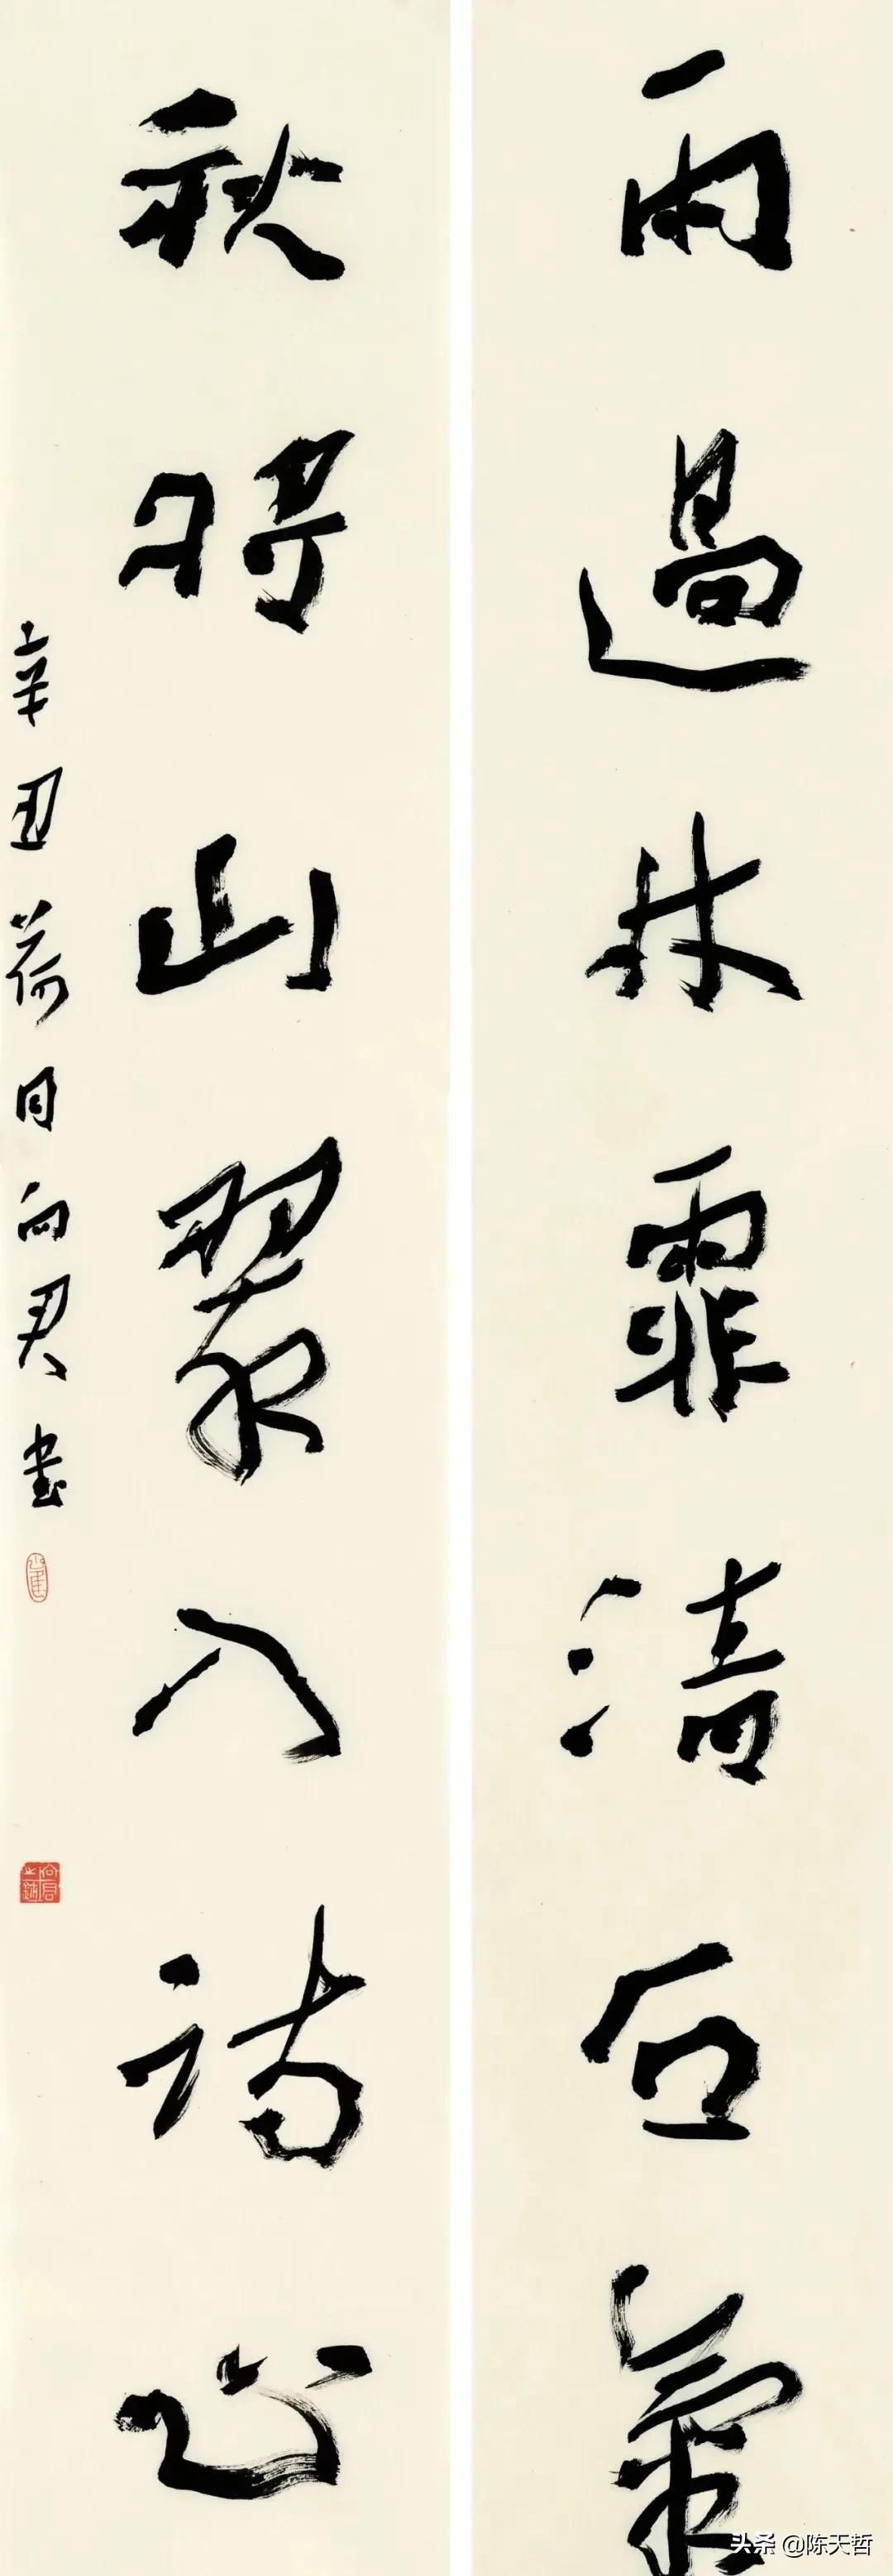 雨過林霏清石氣
秋將山翠入詩心
辛丑荷月向君書
头条 @陈天哲